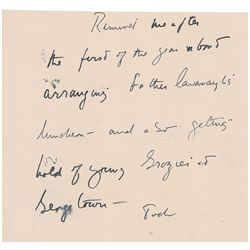 Remind me after
the first of the year about
arranging Father Cavanaugh's
luncheon — and also getting
hold of young Grozier at
Georgetown —